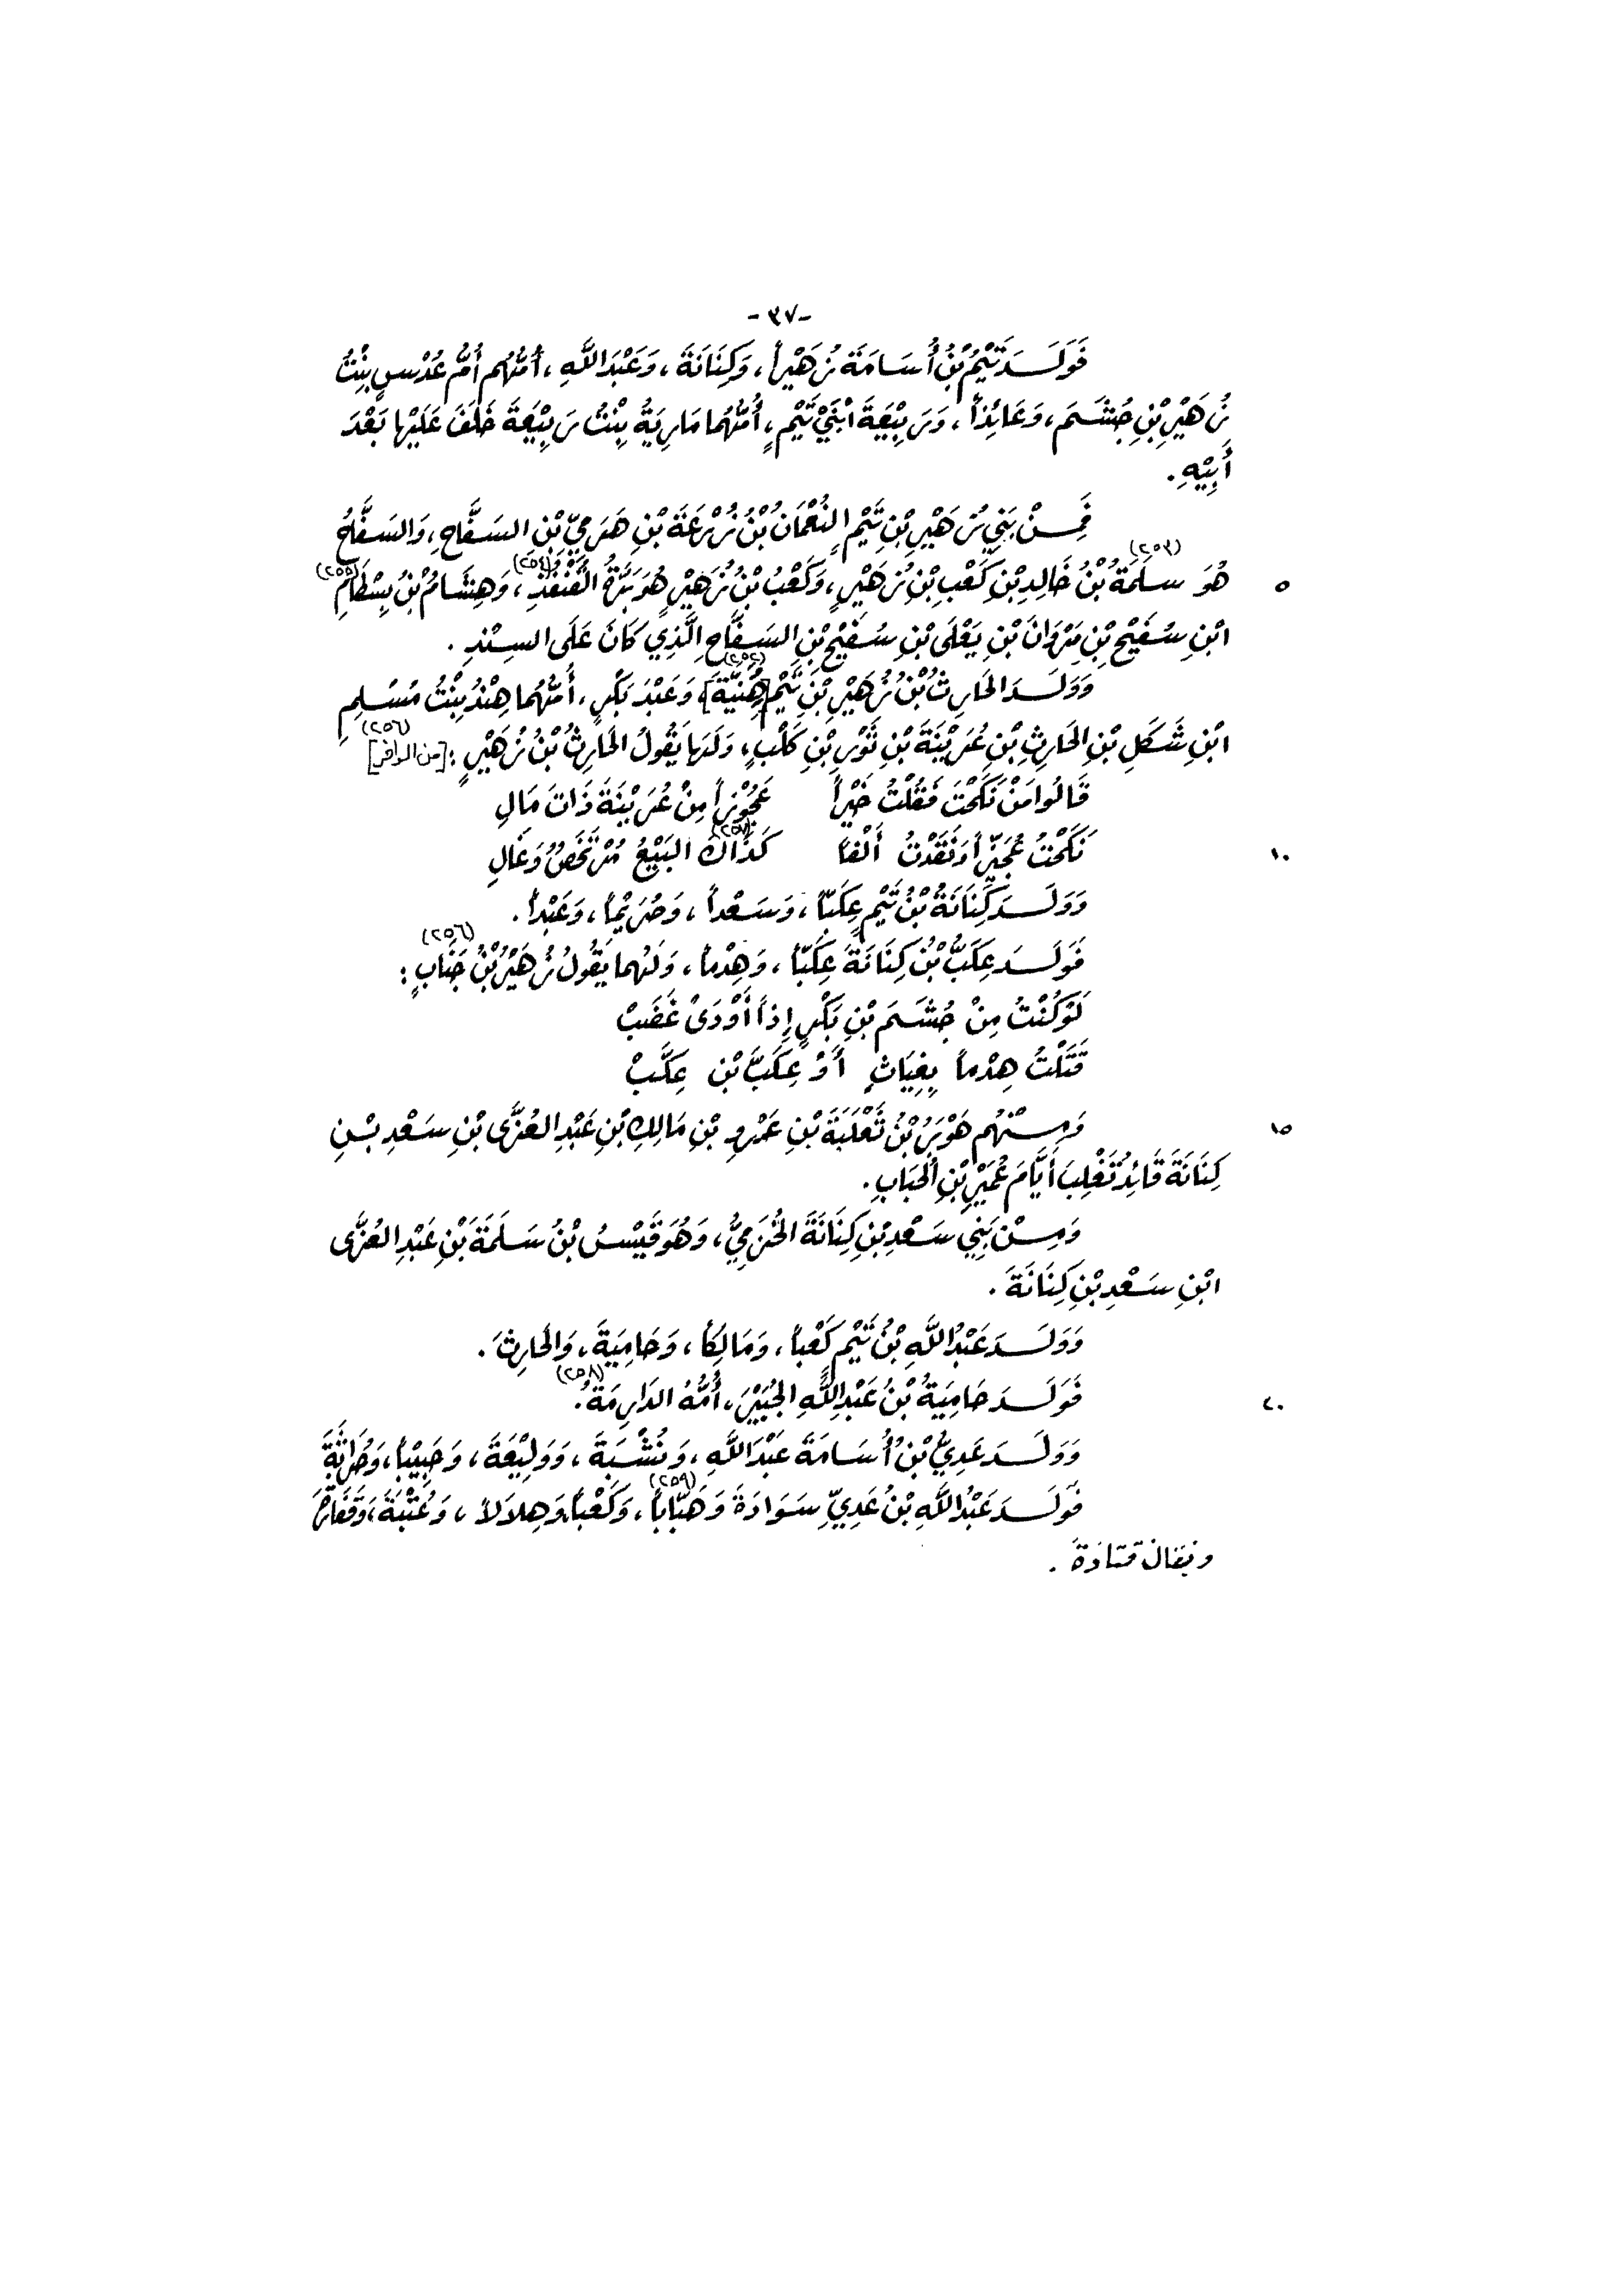 -٣٧-
فَوَلَدَ تَيْمُ بْنُ أُسَامَةَ زُهَيْراً، وَكِنَانَةَ، وَعَبْدَ اللَّهِ، أُمُّهُم أُمُّ عُدُسٍ بِنْتُ
زُهَيْرِ بْنِ جُشَمَ، وَعَائِذاً، وَرَبِيْعَةَ ابْنَيْ تَيْمٍ، أُمُّهُمَا مَارِيَةُ بِنْتُ رَبِيْعَةَ خَلَفَ عَلَيْهَا بَعْدَ
أَبِيْهِ.
فَمِنْ بَنِي زُهَيْرِ بْنِ تَيْمٍ النُعْمَانُ بْنُ زُرْعَةَ بْنِ هَرَمِيِّ بْنِ السَفَّاحِ، وَالسَفَّاحُ
(٢٥٣)
٥ هُوَ سَلَمَةُ بْنُ خَالِدِ بْنِ كَعْبِ بْنِ زُهَيْرٍ، وَكَعْبُ بْنُ زُهَيْرٍ هُوَ بَرَّةُ القُنْفُذِ (٢٥٤)، وَهِشَامُ بْنُ بِسْطَامِ (٢٥٥)
ابْنِ سُفَيْحِ بْنِ مَرْوَانَ بْنِ يَعْلَى بْنِ سُفَيْحِ بْنِ السَفَّاحِ الَّذِي كَانَ عَلَى السِنْدِ.
وَوَلَدَ الحَارِثُ بْنُ زُهَيْرِ بْنِ تَيْمٍ [هُنَيَّةَ]، وَعَبْدَ بَكْرٍ، أُمُّهُمَا هِنْدُ بِنْتُ مُسْلِمِ
ابْنِ شَكَلِ بْنِ الحَارِثِ بْنِ عُرَيْنَةَ بْنِ ثَوْرِ بْنِ كَلْبٍ، وَلَهَا يَقُولُ الحَارِثُ بْنُ زُهَيْرٍ (٢٥٦): [من الوافر]
قَالُوا مَنْ نَكَحْتَ فَقُلْتُ خَيْراً عَجُوْزاً مِنْ عُرَيْنَةَ ذَاتَ مَالِ
١٠ نَكَحْتُ عُجَيِّزاً وَنَقَدْتُ أَلْفاً كَذَاكَ (٢٥٧) البَيْعُ مُرْتَخَصٌ وَغَالِ
وَوَلَدَ كِنَانَةُ بْنُ تَيْمٍ عِكَبّاً، وَسَعْداً، وَصُرَيْماً، وَعَبْداً.
فَوَلَدَ عِكَبُّ بْنُ كِنَانَةَ عِكَبّاً، وَهِدْماً، وَلَهُما يَقُولُ زُهَيْرُ بْنُ جَنَابٍ (٢٥٦):
لَوْ كُنْتُ مِنْ جُشَمَ بْنِ بَكْرٍ إِذاً أَوْدَى غَضَبْ
قَتَلْتُ هِدْماً بِغِيَاثٍ أَوْ عِكَبَّ بْنِ عِكَبْ
١٥ وَمِنْهُم هَوْبَرُ بْنُ ثَعْلَبَةَ بْنِ عَمْرِو بْنِ مَالِكِ بْنِ عَبْدِ العُزَّى بْنِ سَعْدِ بْنِ
كِنَانَةَ قَائِدُ تَغْلِبَ أَيَّامَ عُمَيْرِ بْنِ الحُبَابِ.
وَمِنْ بَنِي سَعْدِ بْنِ كِنَانَةَ الخُزَمِيُّ، وَهُوَ قَيْسُ بْنُ سَلَمَةَ بْنِ عَبْدِ العُزَّى
ابْنِ سَعْدِ بْنِ كِنَانَةَ.
وَوَلَدَ عَبْدُ اللَّهِ بْنُ تَيْمٍ كَعْباً، وَمَالِكاً، وَحَامِيَةَ، وَالحَارِثَ.
٢٠ فَوَلَدَ حَامِيَةُ بْنُ عَبْدِ اللَّهِ الجُبَيْرَ، أُمُّهُ الدَارِمَةُ (٢٥٨).
وَوَلَدَ عَدِيُّ بْنُ أُسَامَةَ عَبْدَ اللَّهِ، وَنُشْبَةَ، وَوَلِيْعَةَ، وَحَبِيْباً، وَحُرْثَةَ
فَوَلَدَ عَبْدُ اللَّهِ بْنُ عَدِيٍّ سَوَادَةَ وَهَبَّاباً (٢٥٩)، وَكَعْباً وَهِلاَلاً، وَعُتْبَةَ،
ويقال قتادة.